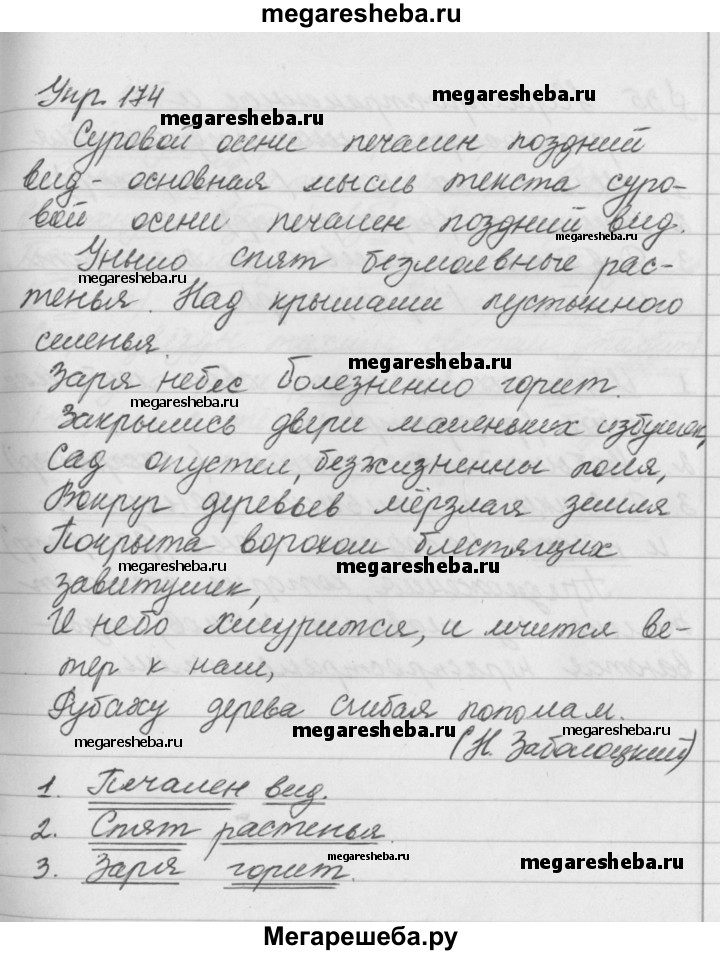 megaresheba.ru
Упр. 174
megaresheba.ru
megaresheba.ru
Суровой осени печален поздний
вид - основная мысль текста суро-
вой осени печален поздний вид.
megaresheba.ru
Уныло спят безмолвные рас-
megaresheba.ru
тенья. Над крышами пустынного
селенья.
megaresheba.ru
Заря небес болезненно горит.
megaresheba.ru
Закрылись двери маленьких избушек,
Сад опустел, безжизненны поля,
Вокруг деревьев мёрзлая земля
Покрыта ворохом блестящих
megaresheba.ru
завитушек,
И небо хмурится, и мчится ве-
тер к нам,
Рубаху дерева сгибая пополам.
megaresheba.ru
megaresheba.ru
(Н. Заболоцкий)
1. Печален вид.
2. Спят растенья.
3. Заря горит.
megaresheba.ru
megaresheba.ru
Мегарешеба.ру